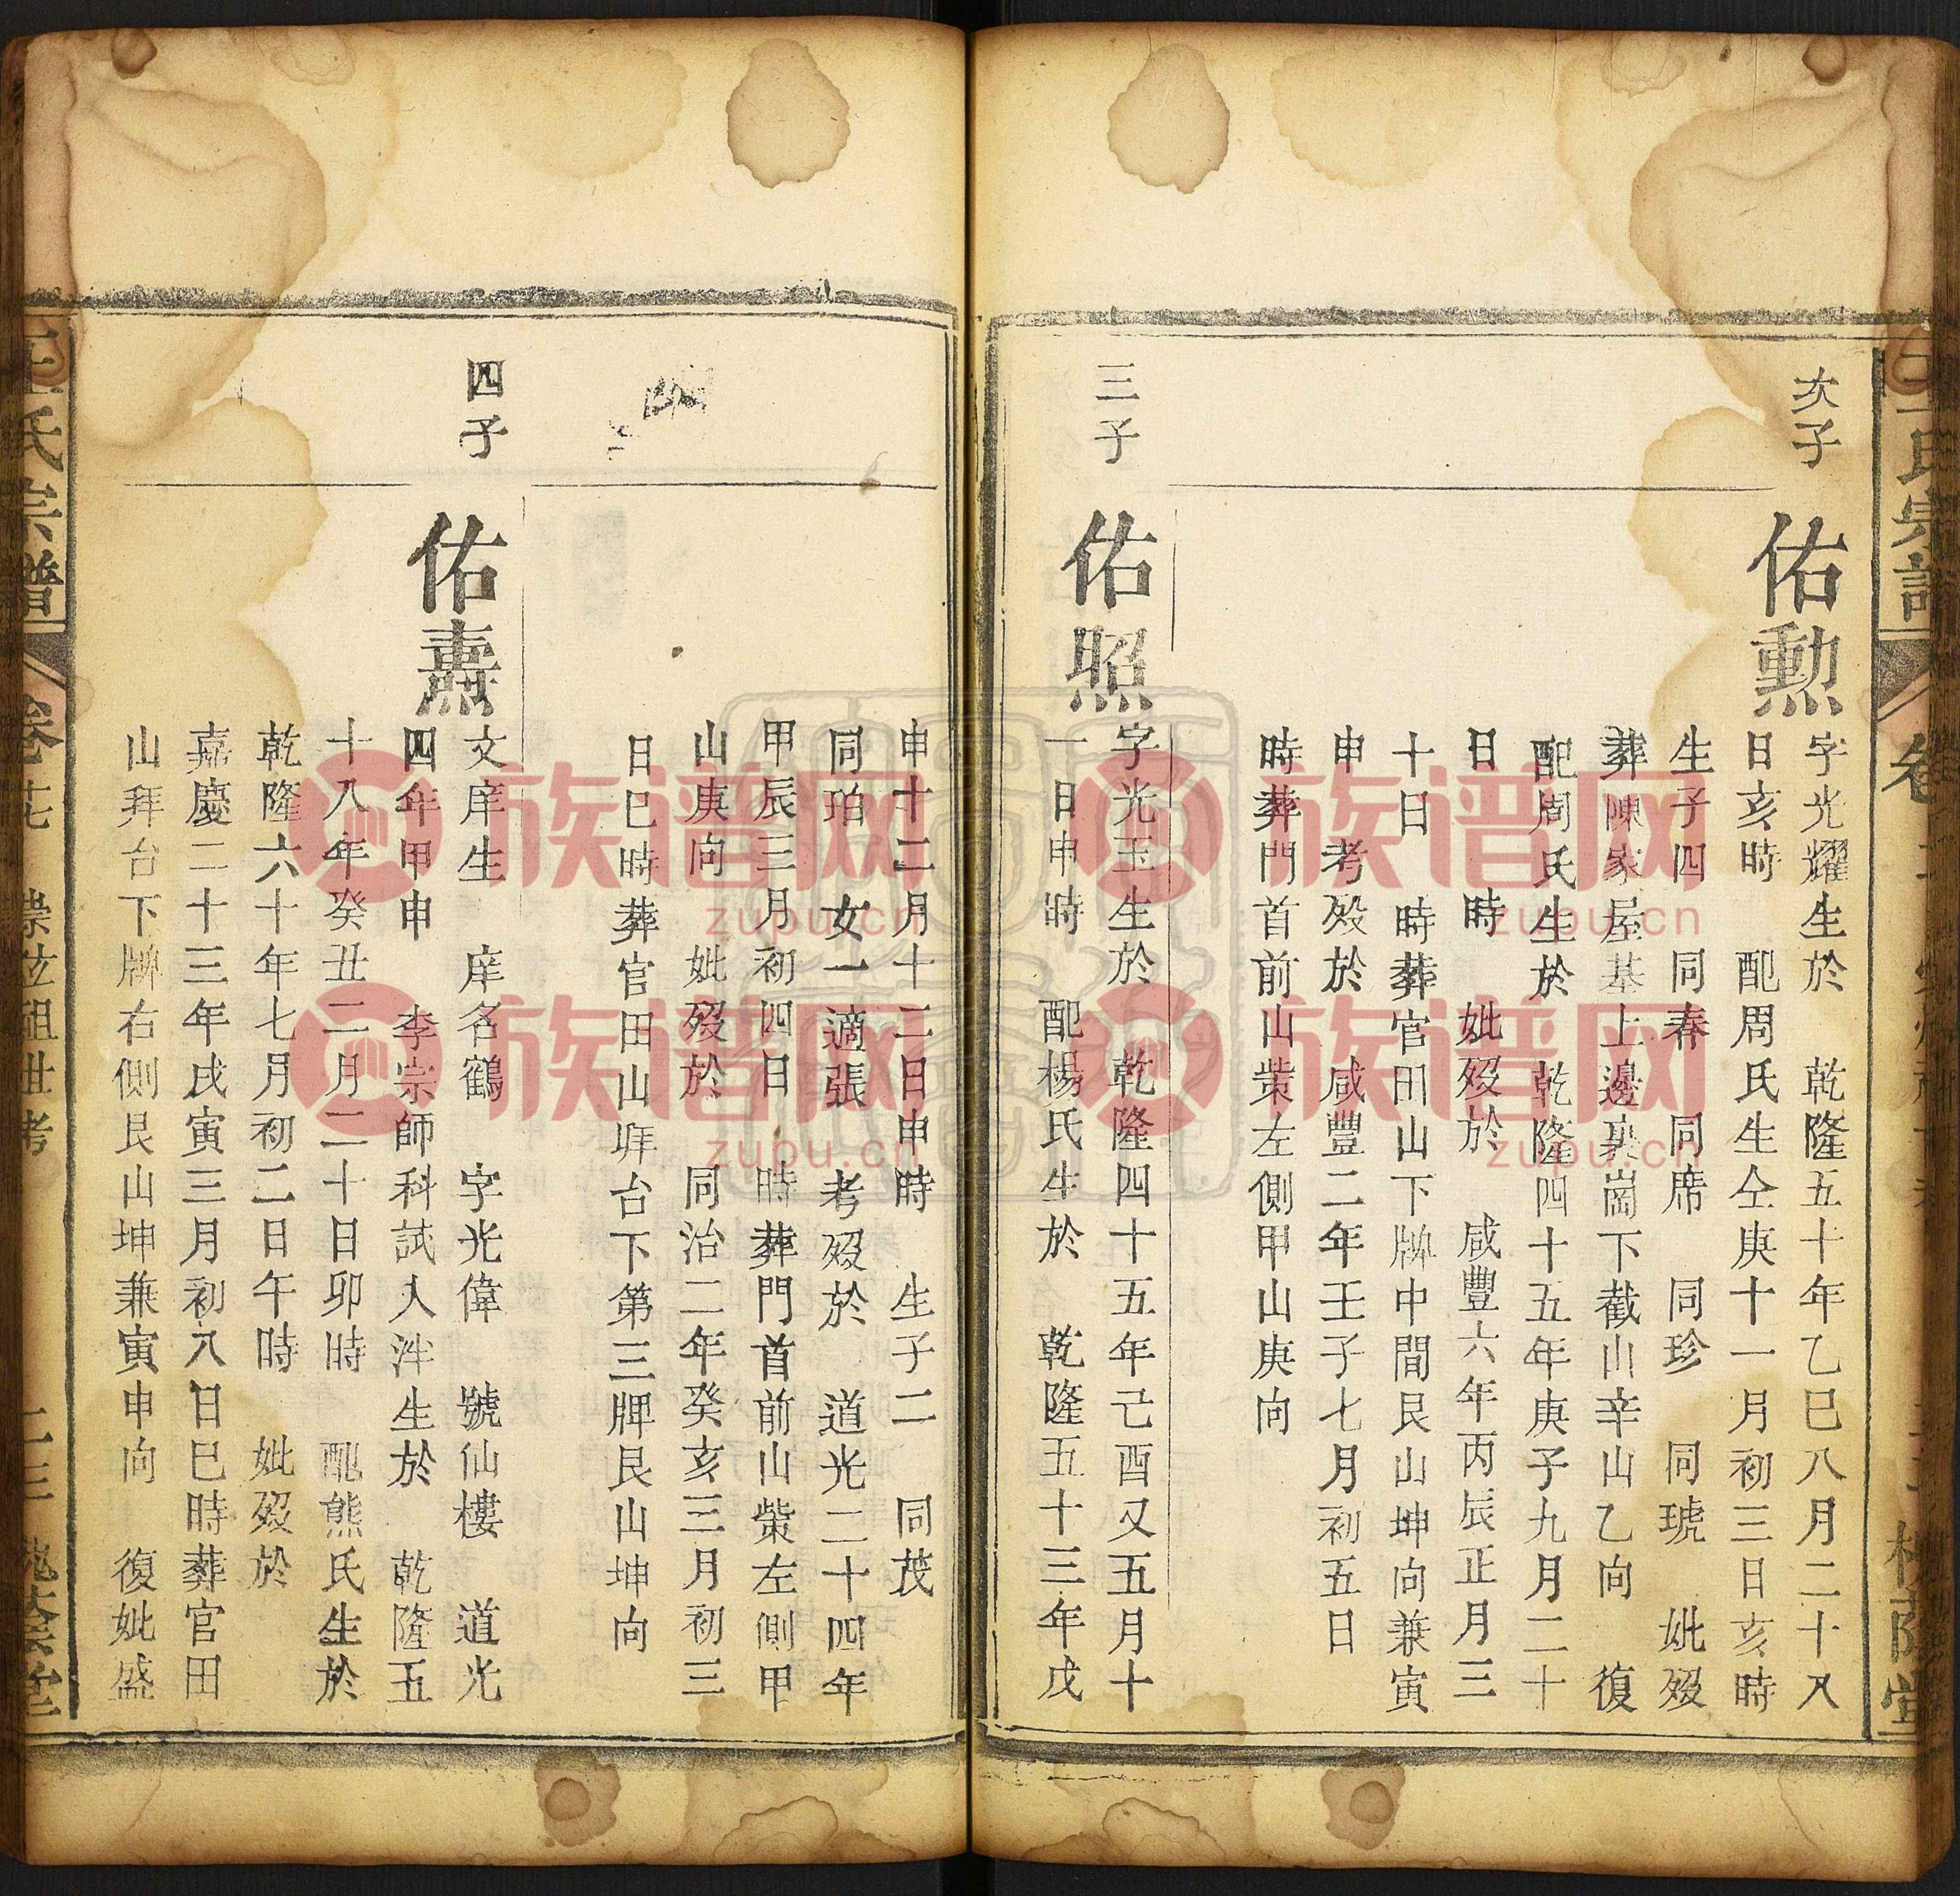 次子
佑勲
字光耀生於 乾隆五十年乙巳八月二十又
日亥時 配周氏生仝庚十一月初三日亥時
生子四 同奉 同席 同珍 同琥 妣歿
葬陳家屋基上邊裏崗下截山辛山乙向 復
配周氏生於 乾隆四十五年庚子九月二十
日 時 妣歿於 咸豐六年丙辰正月三
十日 時葬官田山下牌中間艮山坤向兼寅
申 考歿於 咸豐二年壬子七月初五日
時葬門首前山柴左側甲山庚向
三子
佑照
字光玉生於 乾隆四十五年己酉又五月十
一日申時 配楊氏生於 乾隆五十三年戊
申十二月十二日申時 生子二 同茂
同珀 女一適張 考歿於 道光二十四年
甲辰三月初四日 時葬門首前山柴左側甲
山庚向 妣歿於 同治二年癸亥三月初三
日巳時葬官田山拜台下第三牌艮山坤向
四子
佑燾
文庠生 庠名鶴 字光偉 號仙樓 道光
四年甲申 李宗師科試入泮生於 乾隆五
十八年癸丑二月二十日卯時 配熊氏生於
乾隆六十年七月初二日午時 妣歿於
嘉慶二十三年戌寅三月初八日巳時葬官田
山拜台下牌右側艮山坤兼寅申向 復妣盛
氏宗譜
卷十七 崇位祖世考 二三 槐蔭堂
族谱网
zupu.cn
族谱网
zupu.cn
族谱网
zupu.cn
族谱网
zupu.cn